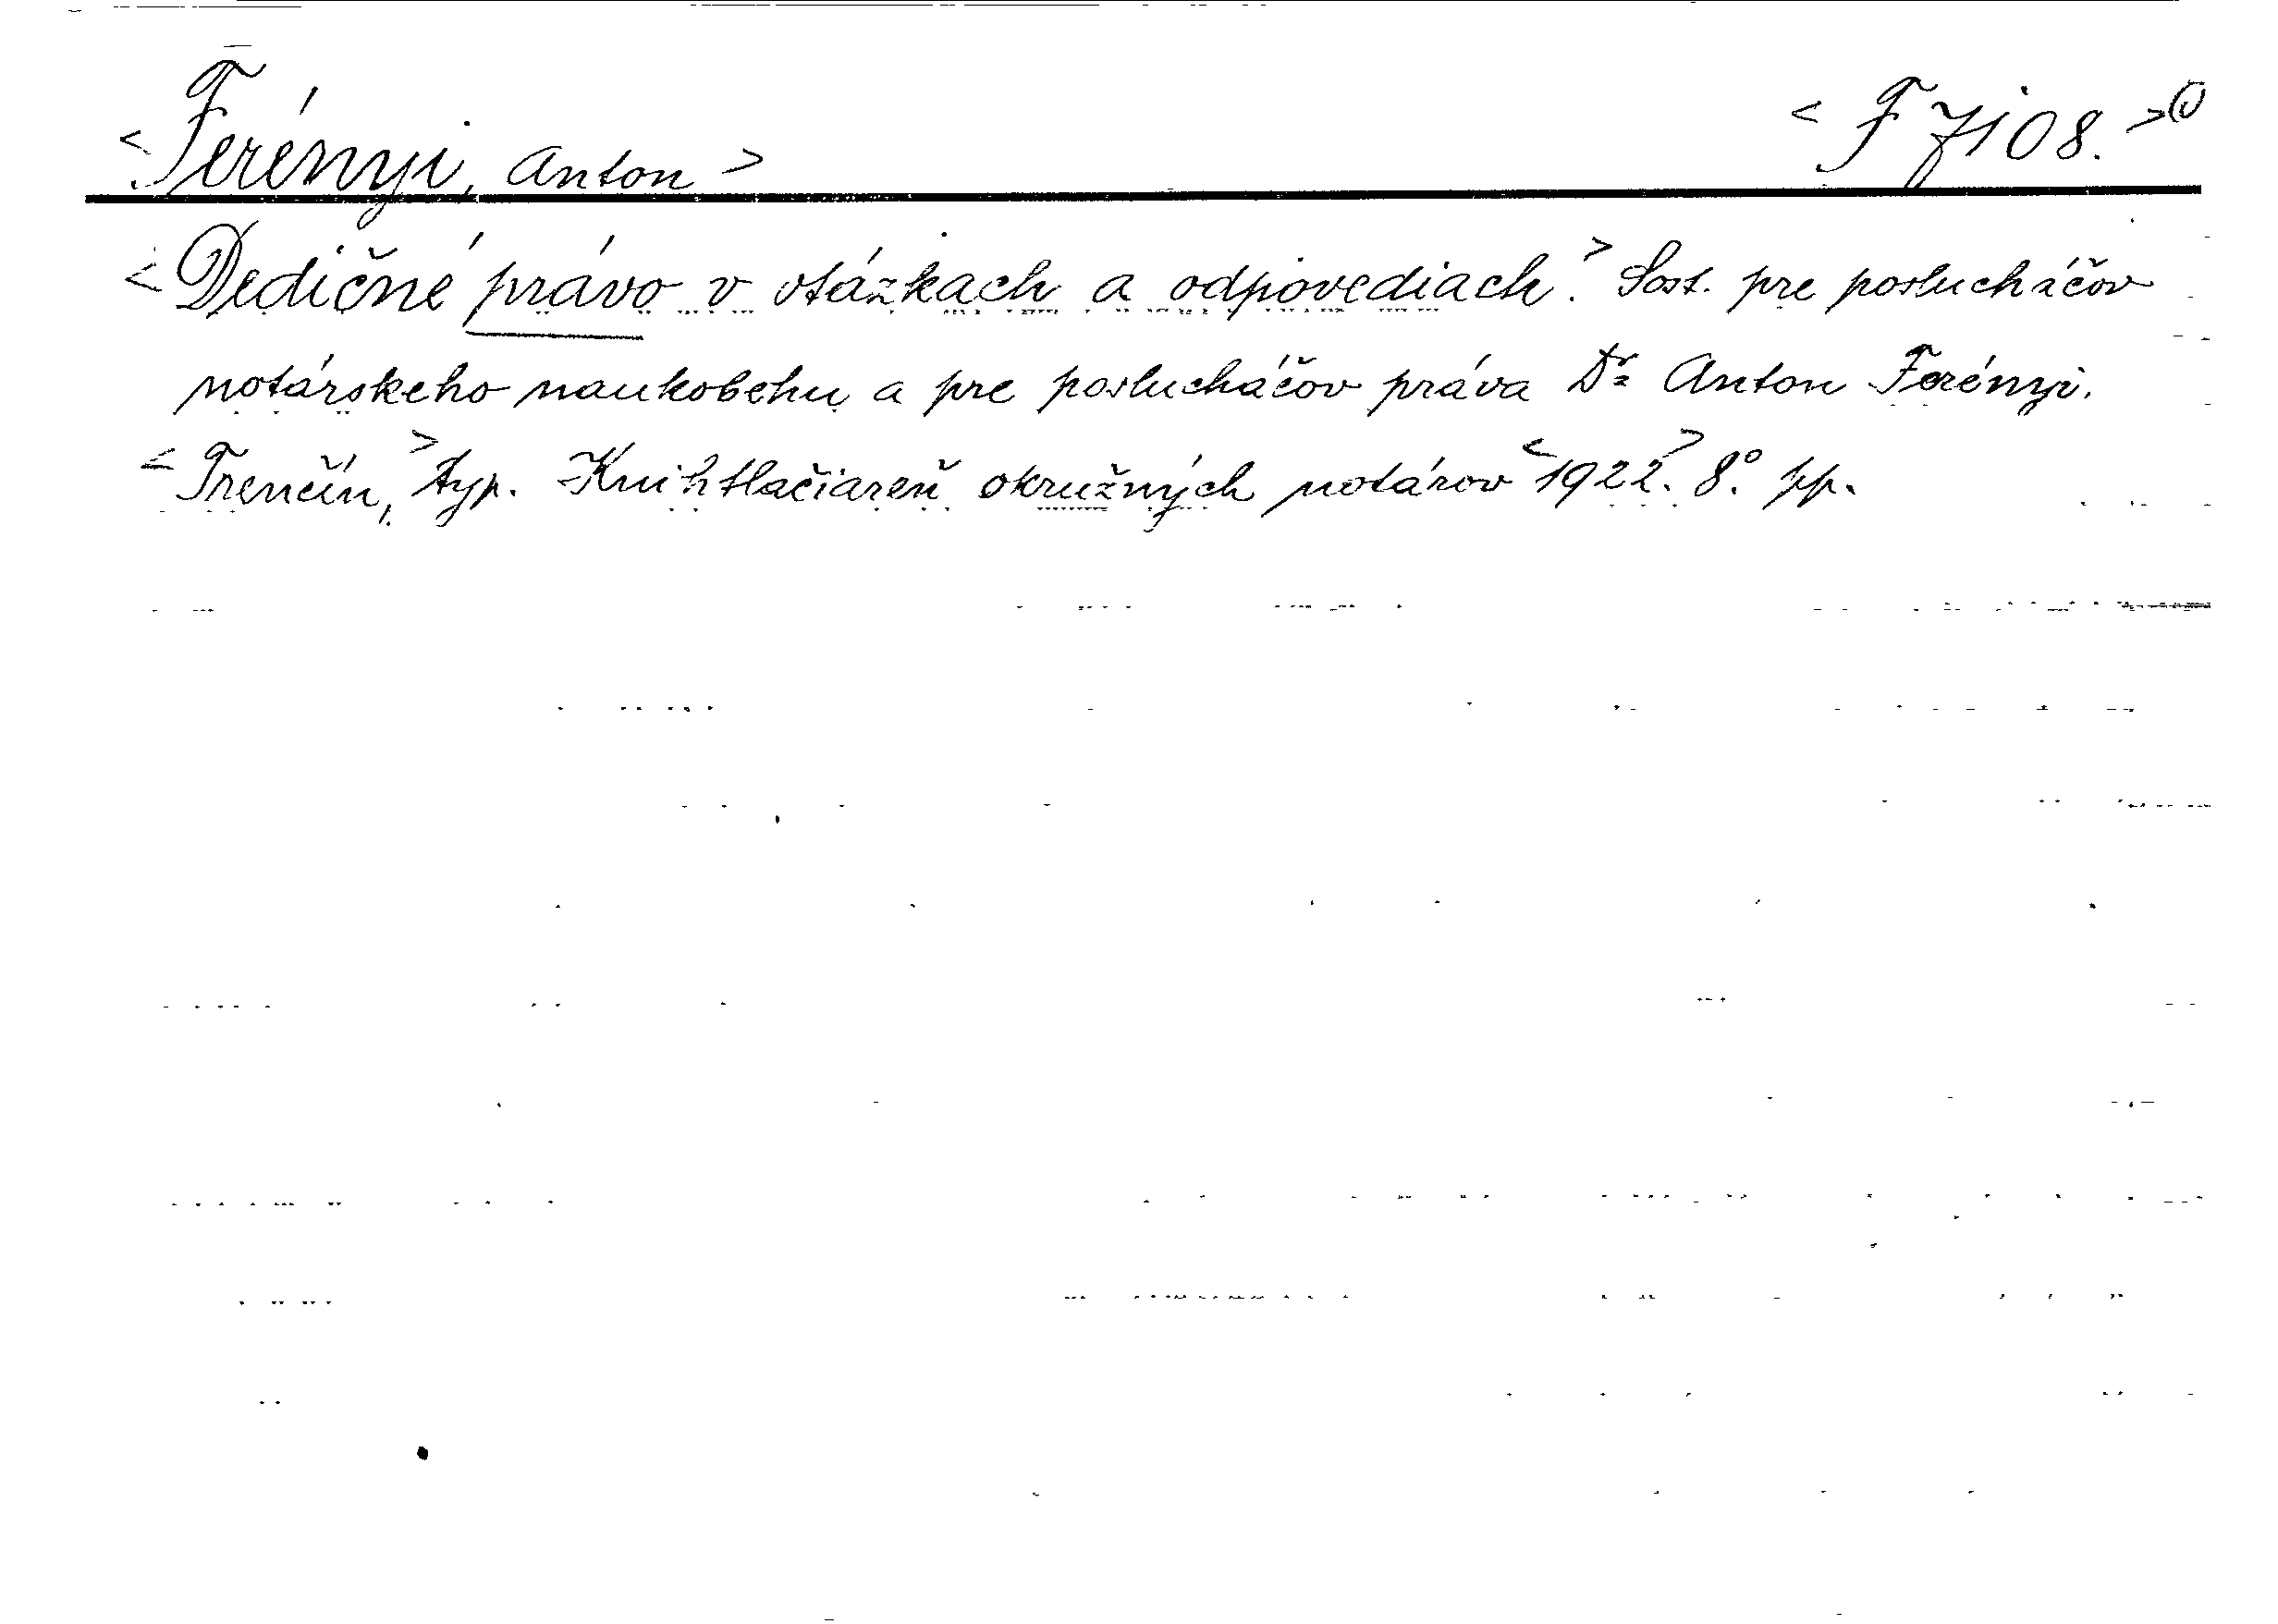 <Ferényi, Anton> <F 7108.>
<Dedičné právo v otázkach a odpovediach.> Sost. pre poslucháčov
notárskeho naukobehu a pre poslucháčov práva Dr Anton Ferényi.
<Trenčín,> typ. Knihtlačiareň okružných notárov <1922.> 8°. pp.